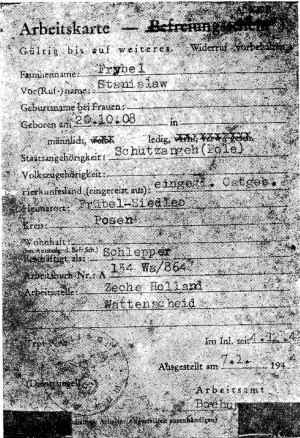 Arbeitskarte — Befreiungsschein
Gültig bis auf weiteres. Widerruf vorbehalten
Familienname: Frybel
Vor(Ruf-)name: Stanislaw
Geburtsname bei Frauen:
Geboren am 20.10.08 in
männlich, weibl. ledig,
Staatsangehörigkeit: Schutzangeh(Pole)
Volkszugehörigkeit:
Herkunftsland (eingereist aus): eingegl. Ostgeb.
Heimatort: Prübel-Siedleo
Kreis: Posen
Wohnhaft:
Beschäftigt als: Schlepper
Arbeitsbuch-Nr.: A 154 Ws/864
Arbeitsstelle: Zeche Holland
Wattenscheid
Im Inl. seit
Ausgestellt am 7.2. 194
(Dienststempel)
Arbeitsamt
Bochum